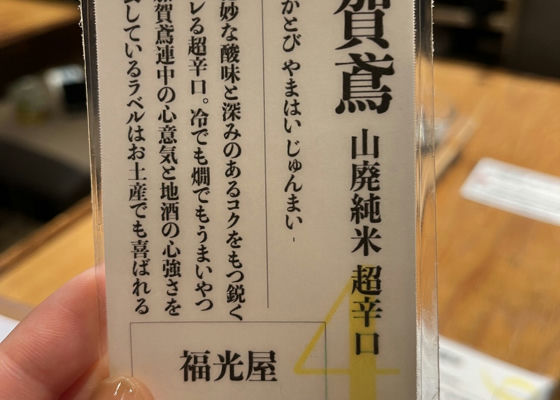 賀鳶 山廃純米 超辛口
かとび やまはい じゅんまい
妙な酸味と深みのあるコクをもつ鋭く
レる超辛口。冷でも燗でもうまいやつ
賀鳶連中の心意気と地酒の心強さを
しているラベルはお土産でも喜ばれる
福光屋
4